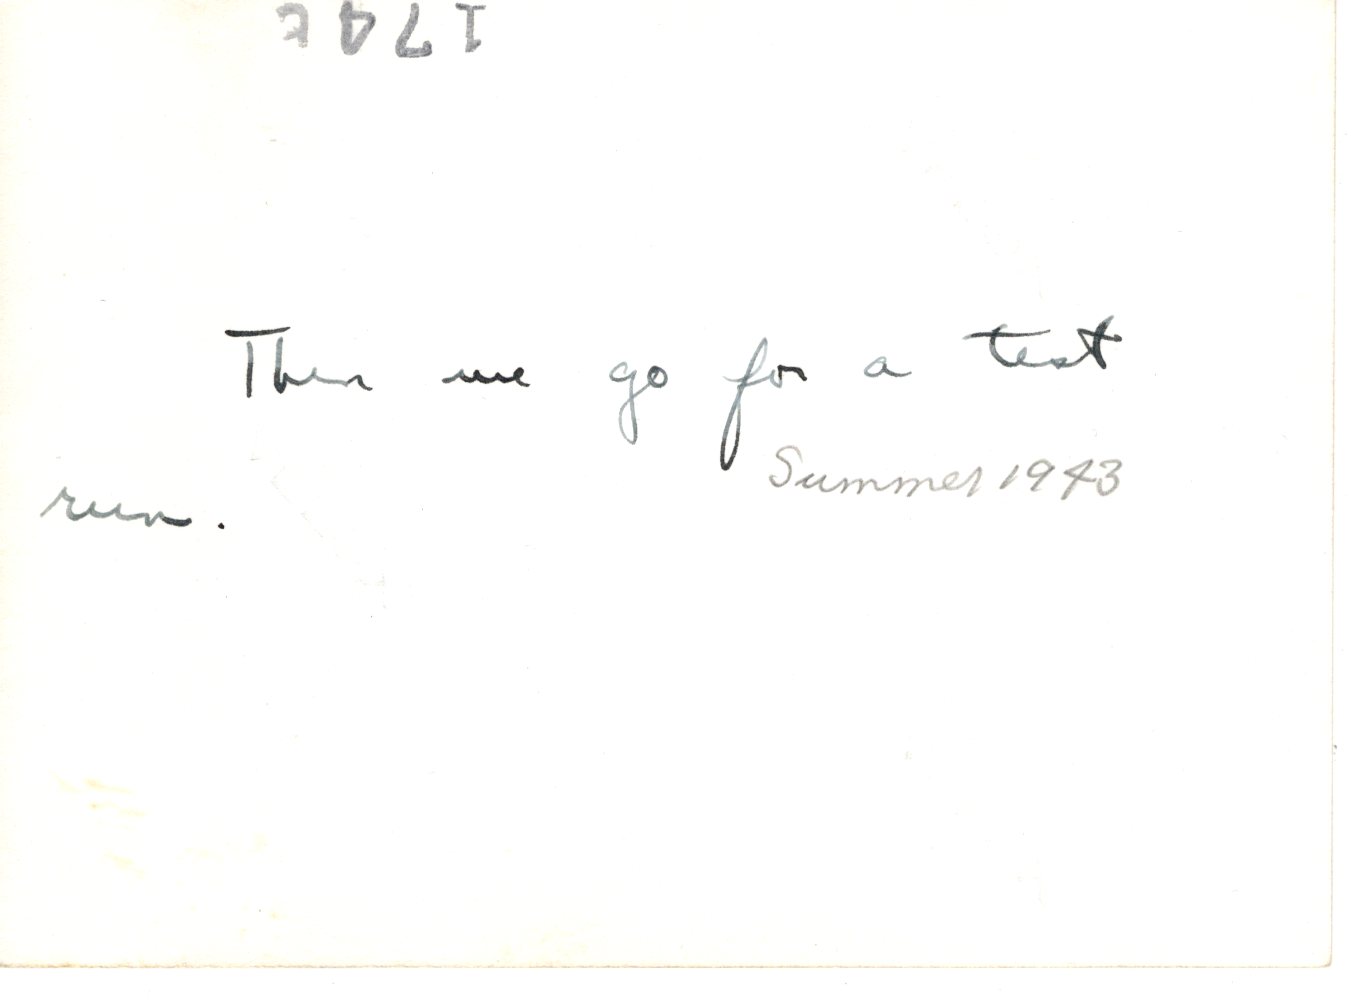 Then we go for a test
Summer 1943
run.